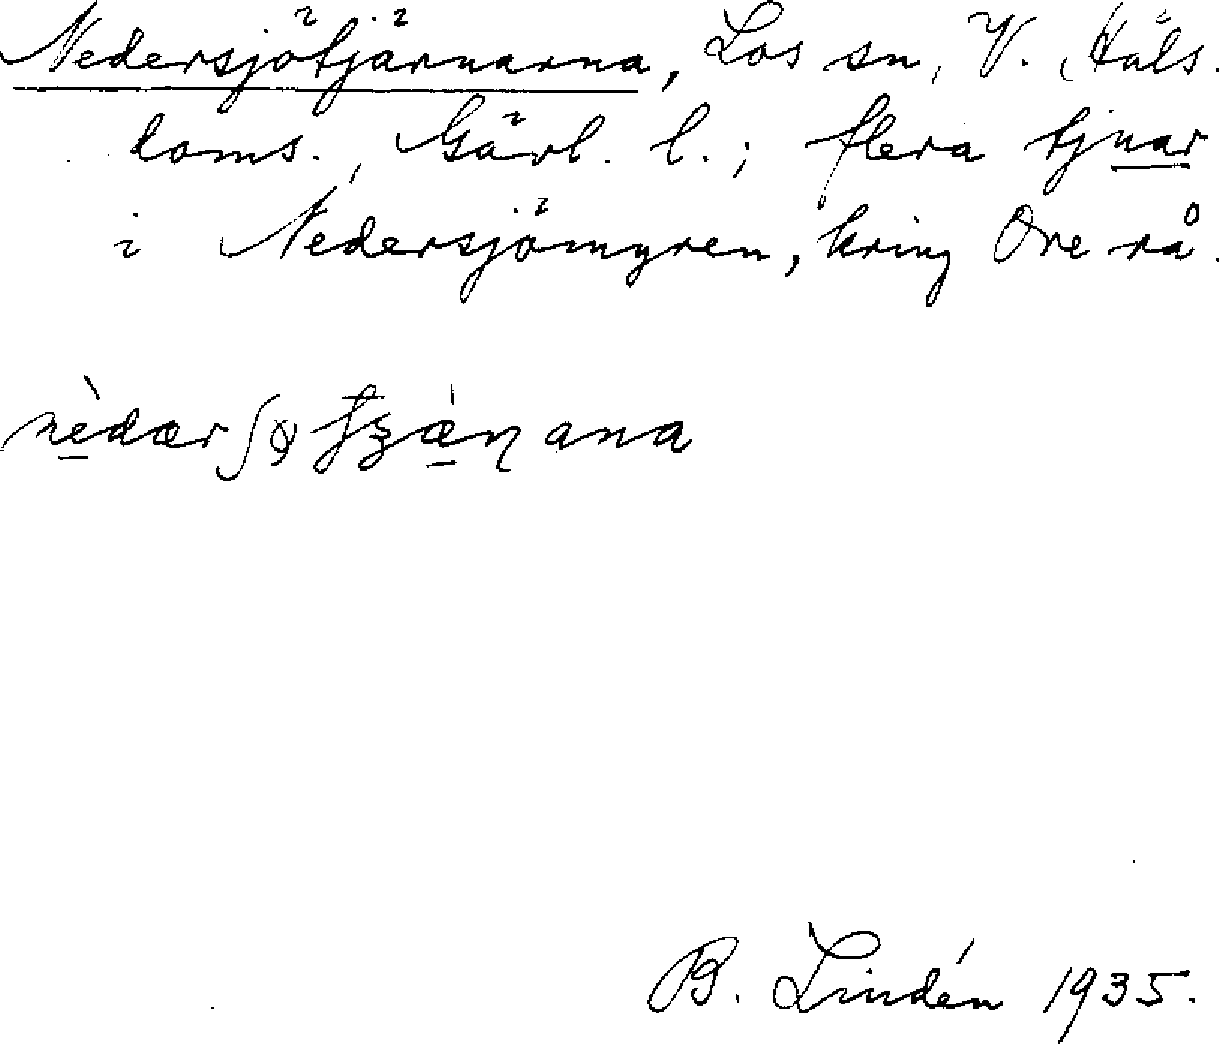 Nedersjötjärnarna, Los sn, V. Häls.
doms., Gävl. l.; flera tjnar
i Nedersjömyren, kring Ore rå.
B. Lindén 1935.